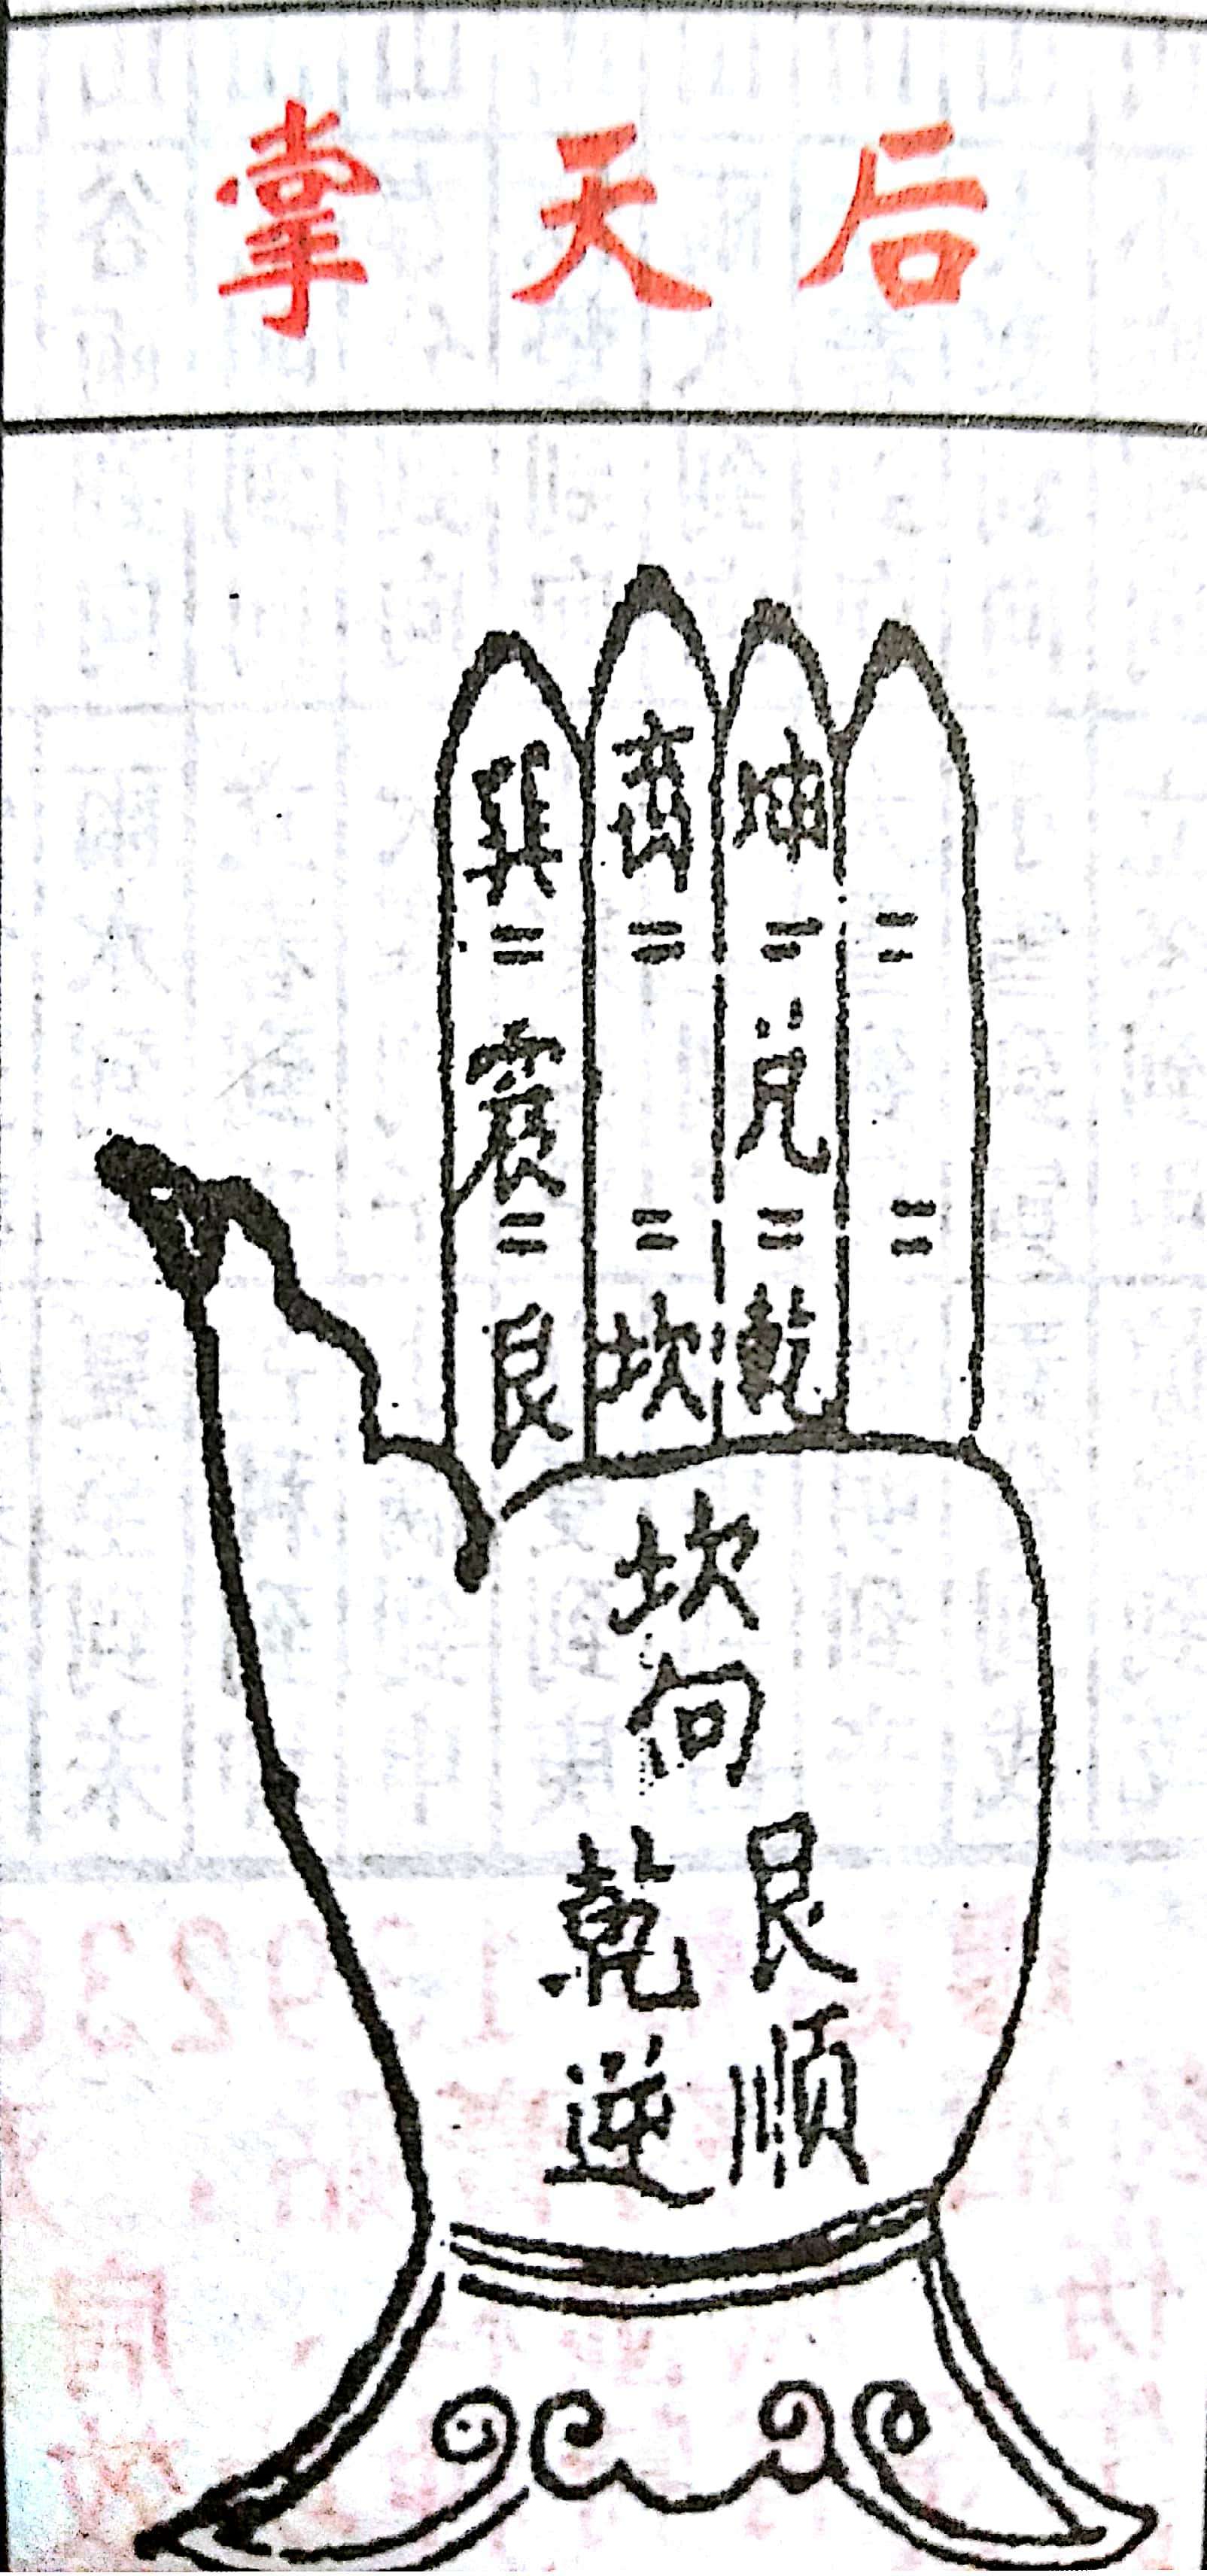 后天掌
巽
震
艮
离
坎
坤
兑
乾
坎向
艮順
乾逆